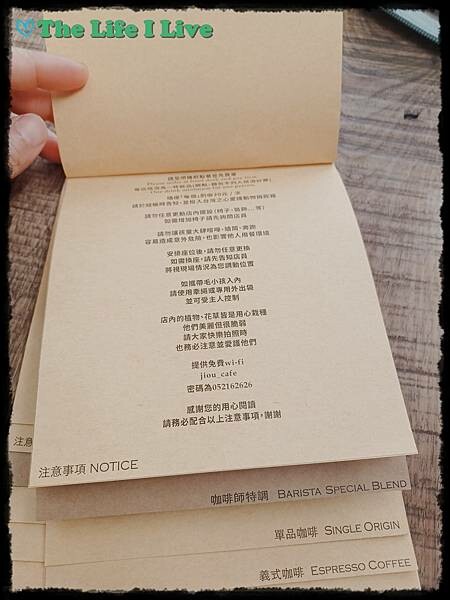 The Life I Live
請勿任意更動店內擺設(椅子、裝飾...等)
如需增加椅子請先詢問店員
請勿讓孩童大肆喧嘩、嬉鬧、奔跑
容易造成意外危險,也影響他人用餐環境
安排座位後,請勿任意更換
如需換座,請先告知店員
將視現場情況為您調動位置
如攜帶毛小孩入內
請使用牽繩或專用外出袋
並可受主人控制
店內的植物、花草皆是用心栽種
他們美麗但很脆弱
請大家快樂拍照時
也務必注意並愛護他們
提供免費wi-fi
jiou_cafe
密碼為052162626
感謝您的用心閱讀
請務必配合以上注意事項,謝謝
注意事項 NOTICE
注意
咖啡師特調 BARISTA SPECIAL BLEND
單品咖啡 SINGLE ORIGIN
義式咖啡 ESPRESSO COFFEE